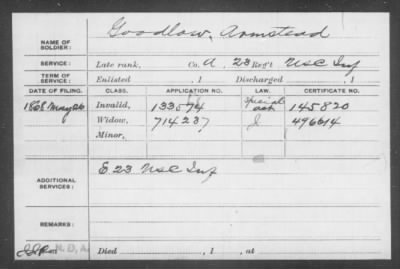 NAME OF SOLDIER: Goodlow, Armstead
SERVICE: Late rank, Co. A, 23 Reg't USC Inf
TERM OF SERVICE: Enlisted , 1 Discharged , 1
DATE OF FILING. CLASS. APPLICATION NO. LAW. CERTIFICATE NO.
1868 May Invalid, 133574 Special act 145820
Widow, 714237 J 496614
Minor,
ADDITIONAL SERVICES: E. 23 USC Inf
REMARKS:
Died , 1 , at